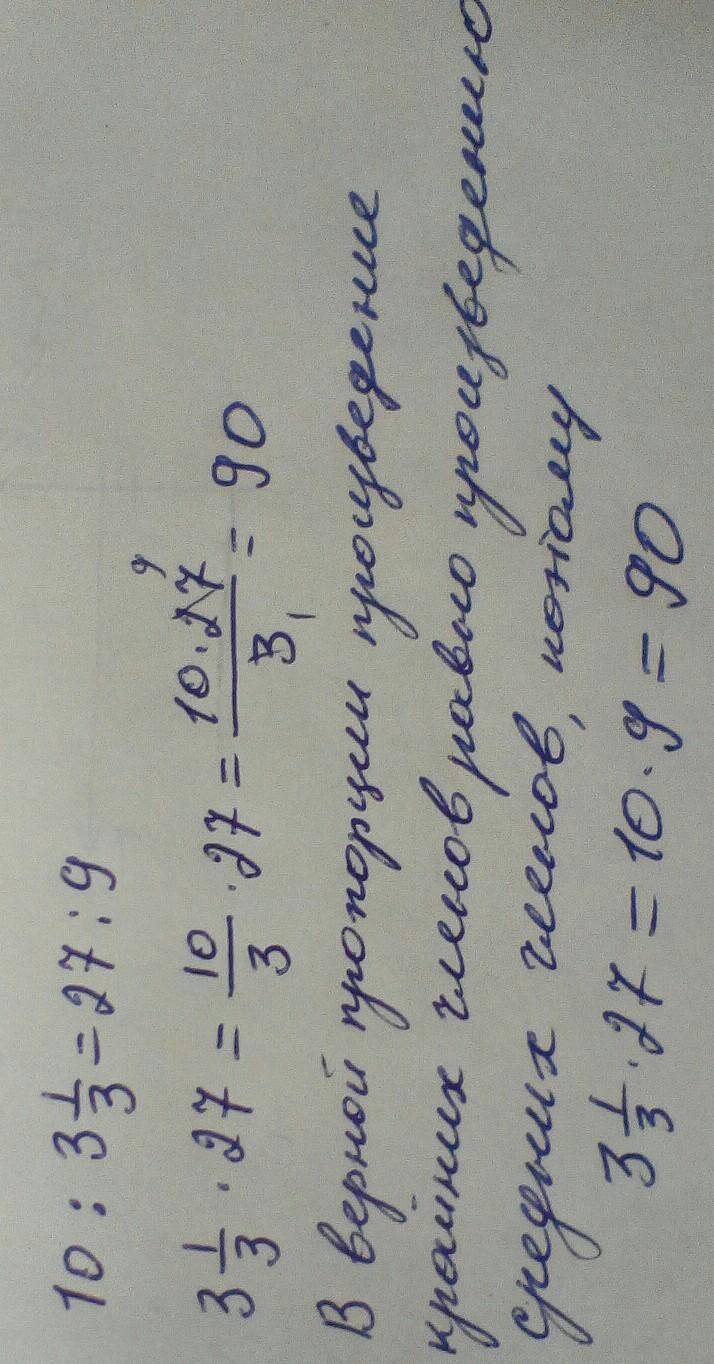 10 : 3 1/3 = 27 : 9
3 1/3 · 27 = 10/3 · 27 = 10 · 27 9 / 3 1 = 90
В верной пропорции произведение
крайних членов равно произведению
средних членов, потому
3 1/3 · 27 = 10 · 9 = 90